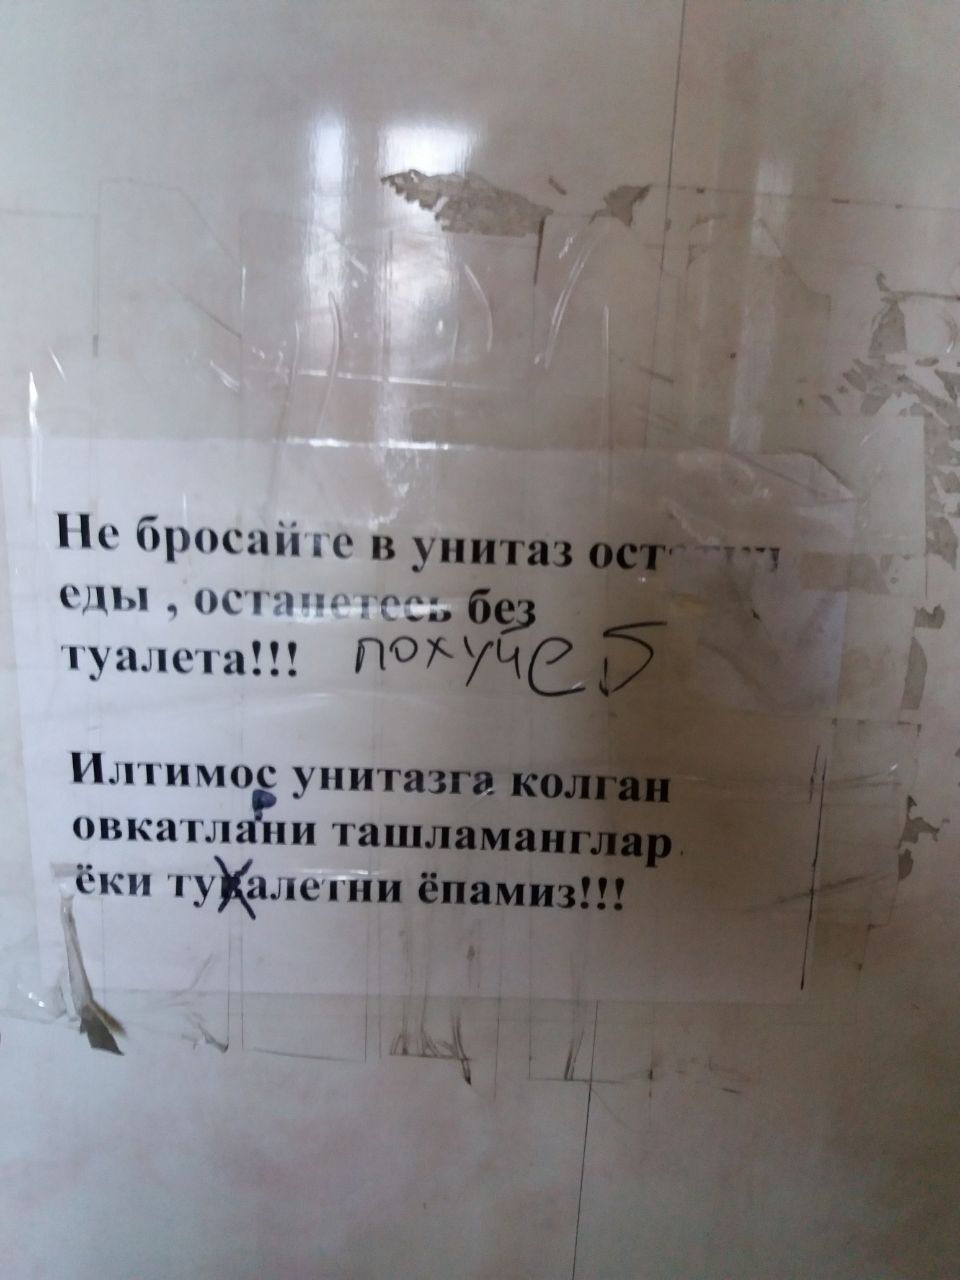 Не бросайте в унитаз остатки
еды , останетесь без
туалета!!! похуй
Илтимос унитазга колган
овкатлани ташламанглар
ёки туалетни ёпамиз!!!